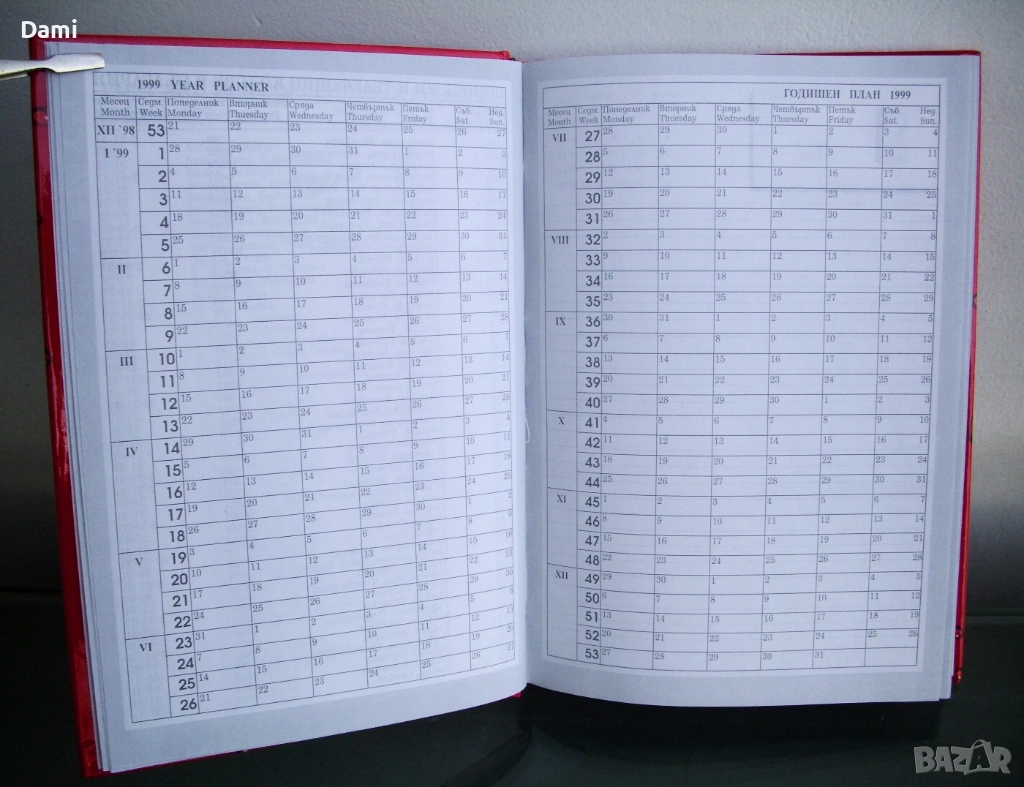 Dami
1999 YEAR PLANNER
Месец Седм. Понеделник Вторник Сряда Четвъртък Петък Съб. Нед.
Month Week Monday Thuesday Wednesday Thursday Friday Sat. Sun.
XII `98 53 21 22 23 24 25 26 27
I `99 1 28 29 30 31 1 2 3
2 4 5 6 7 8 9 10
3 11 12 13 14 15 16 17
4 18 19 20 21 22 23 24
5 25 26 27 28 29 30 31
II 6 1 2 3 4 5 6 7
7 8 9 10 11 12 13 14
8 15 16 17 18 19 20 21
9 22 23 24 25 26 27 28
III 10 1 2 3 4 5 6 7
11 8 9 10 11 12 13 14
12 15 16 17 18 19 20 21
13 22 23 24 25 26 27 28
IV 14 29 30 31 1 2 3 4
15 5 6 7 8 9 10 11
16 12 13 14 15 16 17 18
17 19 20 21 22 23 24 25
18 26 27 28 29 30 1 2
V 19 3 4 5 6 7 8 9
20 10 11 12 13 14 15 16
21 17 18 19 20 21 22 23
22 24 25 26 27 28 29 30
VI 23 31 1 2 3 4 5 6
24 7 8 9 10 11 12 13
25 14 15 16 17 18 19 20
26 21 22 23 24 25 26 27
ГОДИШЕН ПЛАН 1999
Месец Седм. Понеделник Вторник Сряда Четвъртък Петък Съб. Нед.
Month Week Monday Thuesday Wednesday Thursday Friday Sat. Sun.
VII 27 28 29 30 1 2 3 4
28 5 6 7 8 9 10 11
29 12 13 14 15 16 17 18
30 19 20 21 22 23 24 25
31 26 27 28 29 30 31 1
VIII 32 2 3 4 5 6 7 8
33 9 10 11 12 13 14 15
34 16 17 18 19 20 21 22
35 23 24 25 26 27 28 29
IX 36 30 31 1 2 3 4 5
37 6 7 8 9 10 11 12
38 13 14 15 16 17 18 19
39 20 21 22 23 24 25 26
40 27 28 29 30 1 2 3
X 41 4 5 6 7 8 9 10
42 11 12 13 14 15 16 17
43 18 19 20 21 22 23 24
44 25 26 27 28 29 30 31
XI 45 1 2 3 4 5 6 7
46 8 9 10 11 12 13 14
47 15 16 17 18 19 20 21
48 22 23 24 25 26 27 28
XII 49 29 30 1 2 3 4 5
50 6 7 8 9 10 11 12
51 13 14 15 16 17 18 19
52 20 21 22 23 24 25 26
53 27 28 29 30 31
BAZAR